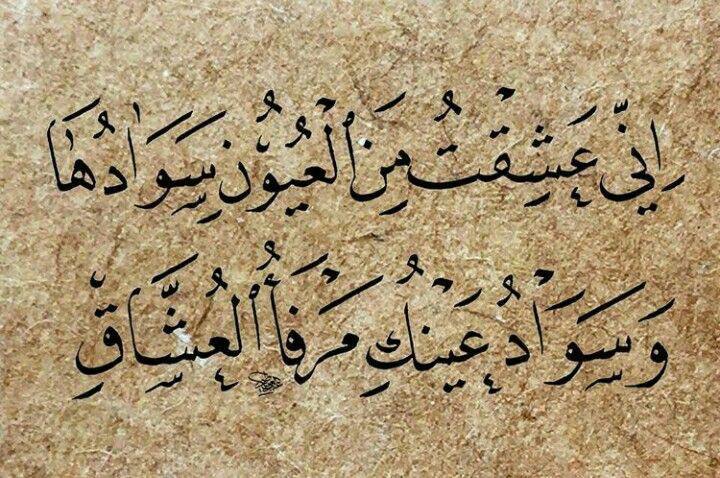 إِنِّي عَشِقْتُ مِنَ ٱلْعُيُونِ سَوَادُهَا
وَسَوَادُ عَيْنِكِ مَرْفَأُ ٱلْعُشَّاقِ